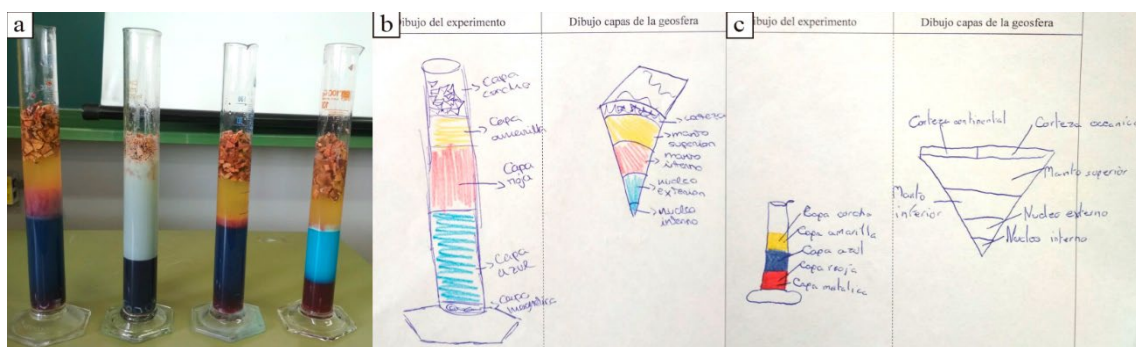 a
b
Dibujo del experimento
Dibujo capas de la geosfera
Capa
corcho
Capa
amarilla
Capa
roja
Capa
azul
Capa
magnética
corteza
manto
superior
manto
interno
nucleo
exterior
nucleo
interno
c
ibujo del experimento
Dibujo capas de la geosfera
Capa corcho
Capa amarilla
Capa azul
Capa rroja
Capa metalica
Corteza continental
Corteza oceanica
Manto superior
Manto
inferior
Nucleo externo
Nucleo interno